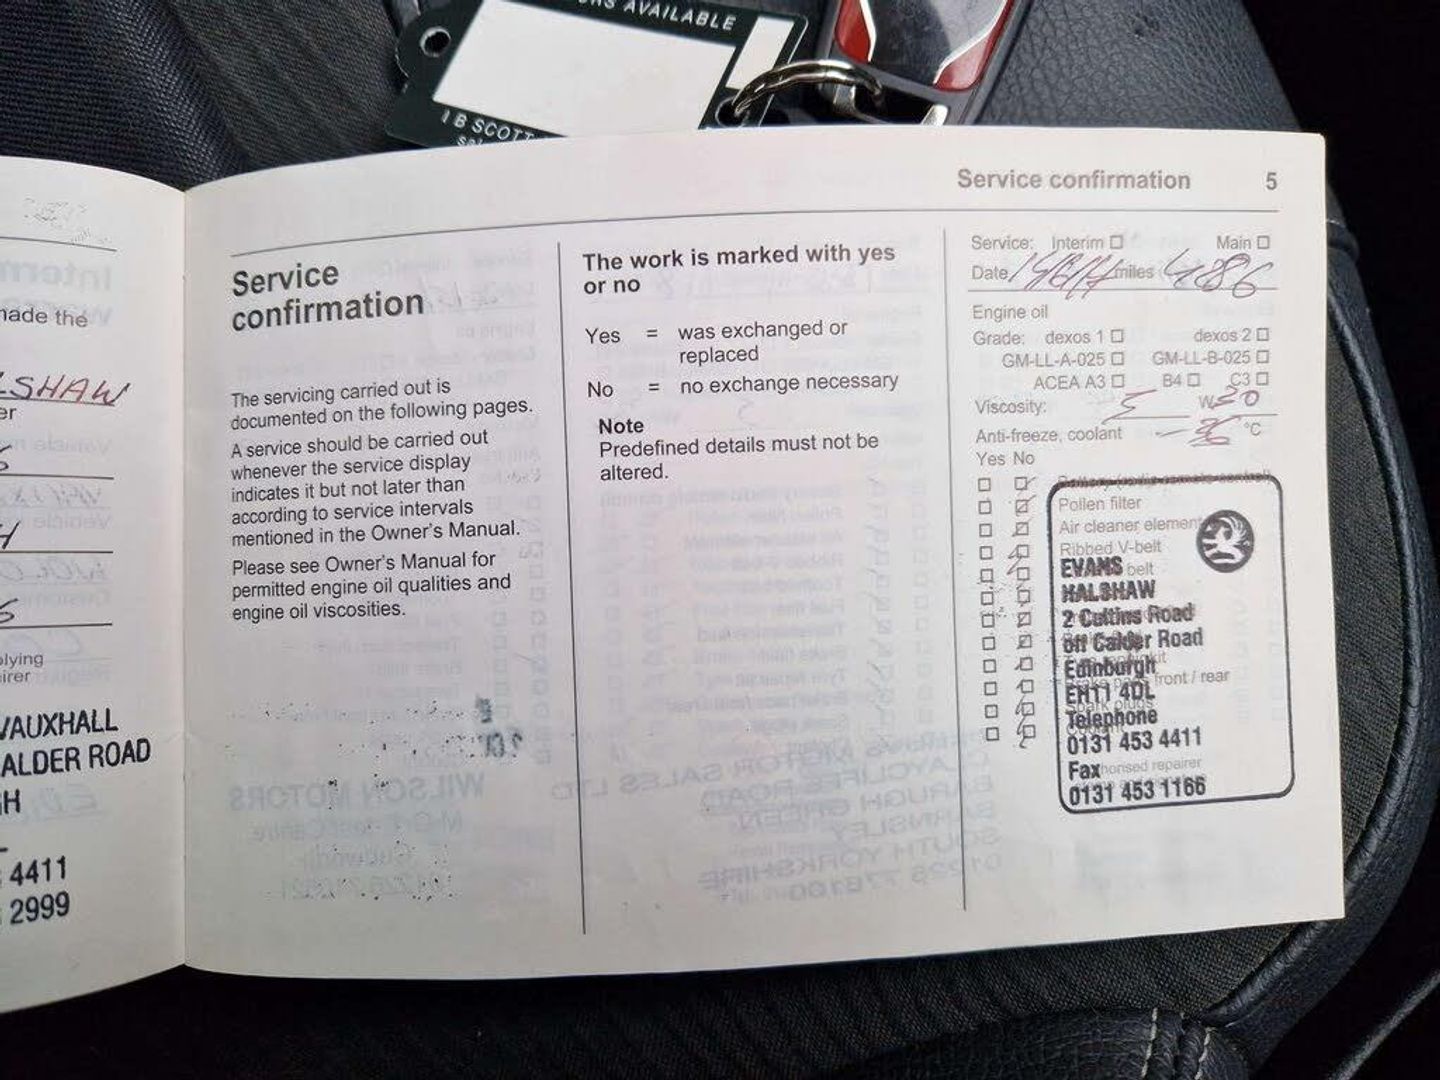 RS AVAILABLE
1 B SCOTT
Service confirmation 5
made the
LSHAW
er
lying
irer
VAUXHALL
ALDER ROAD
GH
4411
2999
Service
confirmation
The servicing carried out is
documented on the following pages.
A service should be carried out
whenever the service display
indicates it but not later than
according to service intervals
mentioned in the Owner's Manual.
Please see Owner's Manual for
permitted engine oil qualities and
engine oil viscosities.
The work is marked with yes
or no
Yes = was exchanged or
replaced
No = no exchange necessary
Note
Predefined details must not be
altered.
Service: Interim ☐ Main ☐
Date miles 9886
Engine oil
Grade: dexos 1 ☐ dexos 2 ☐
GM-LL-A-025 ☐ GM-LL-B-025 ☐
ACEA A3 ☐ B4 ☐ C3 ☐
Viscosity: 5 W 30
Anti-freeze, coolant °C
Yes No
Pollen filter
Air cleaner element
Ribbed V-belt
belt
kit
front / rear
EVANS
HALSHAW
2 Cultins Road
off Calder Road
Edinburgh
EH11 4DL
Telephone
0131 453 4411
Fax
0131 453 1166